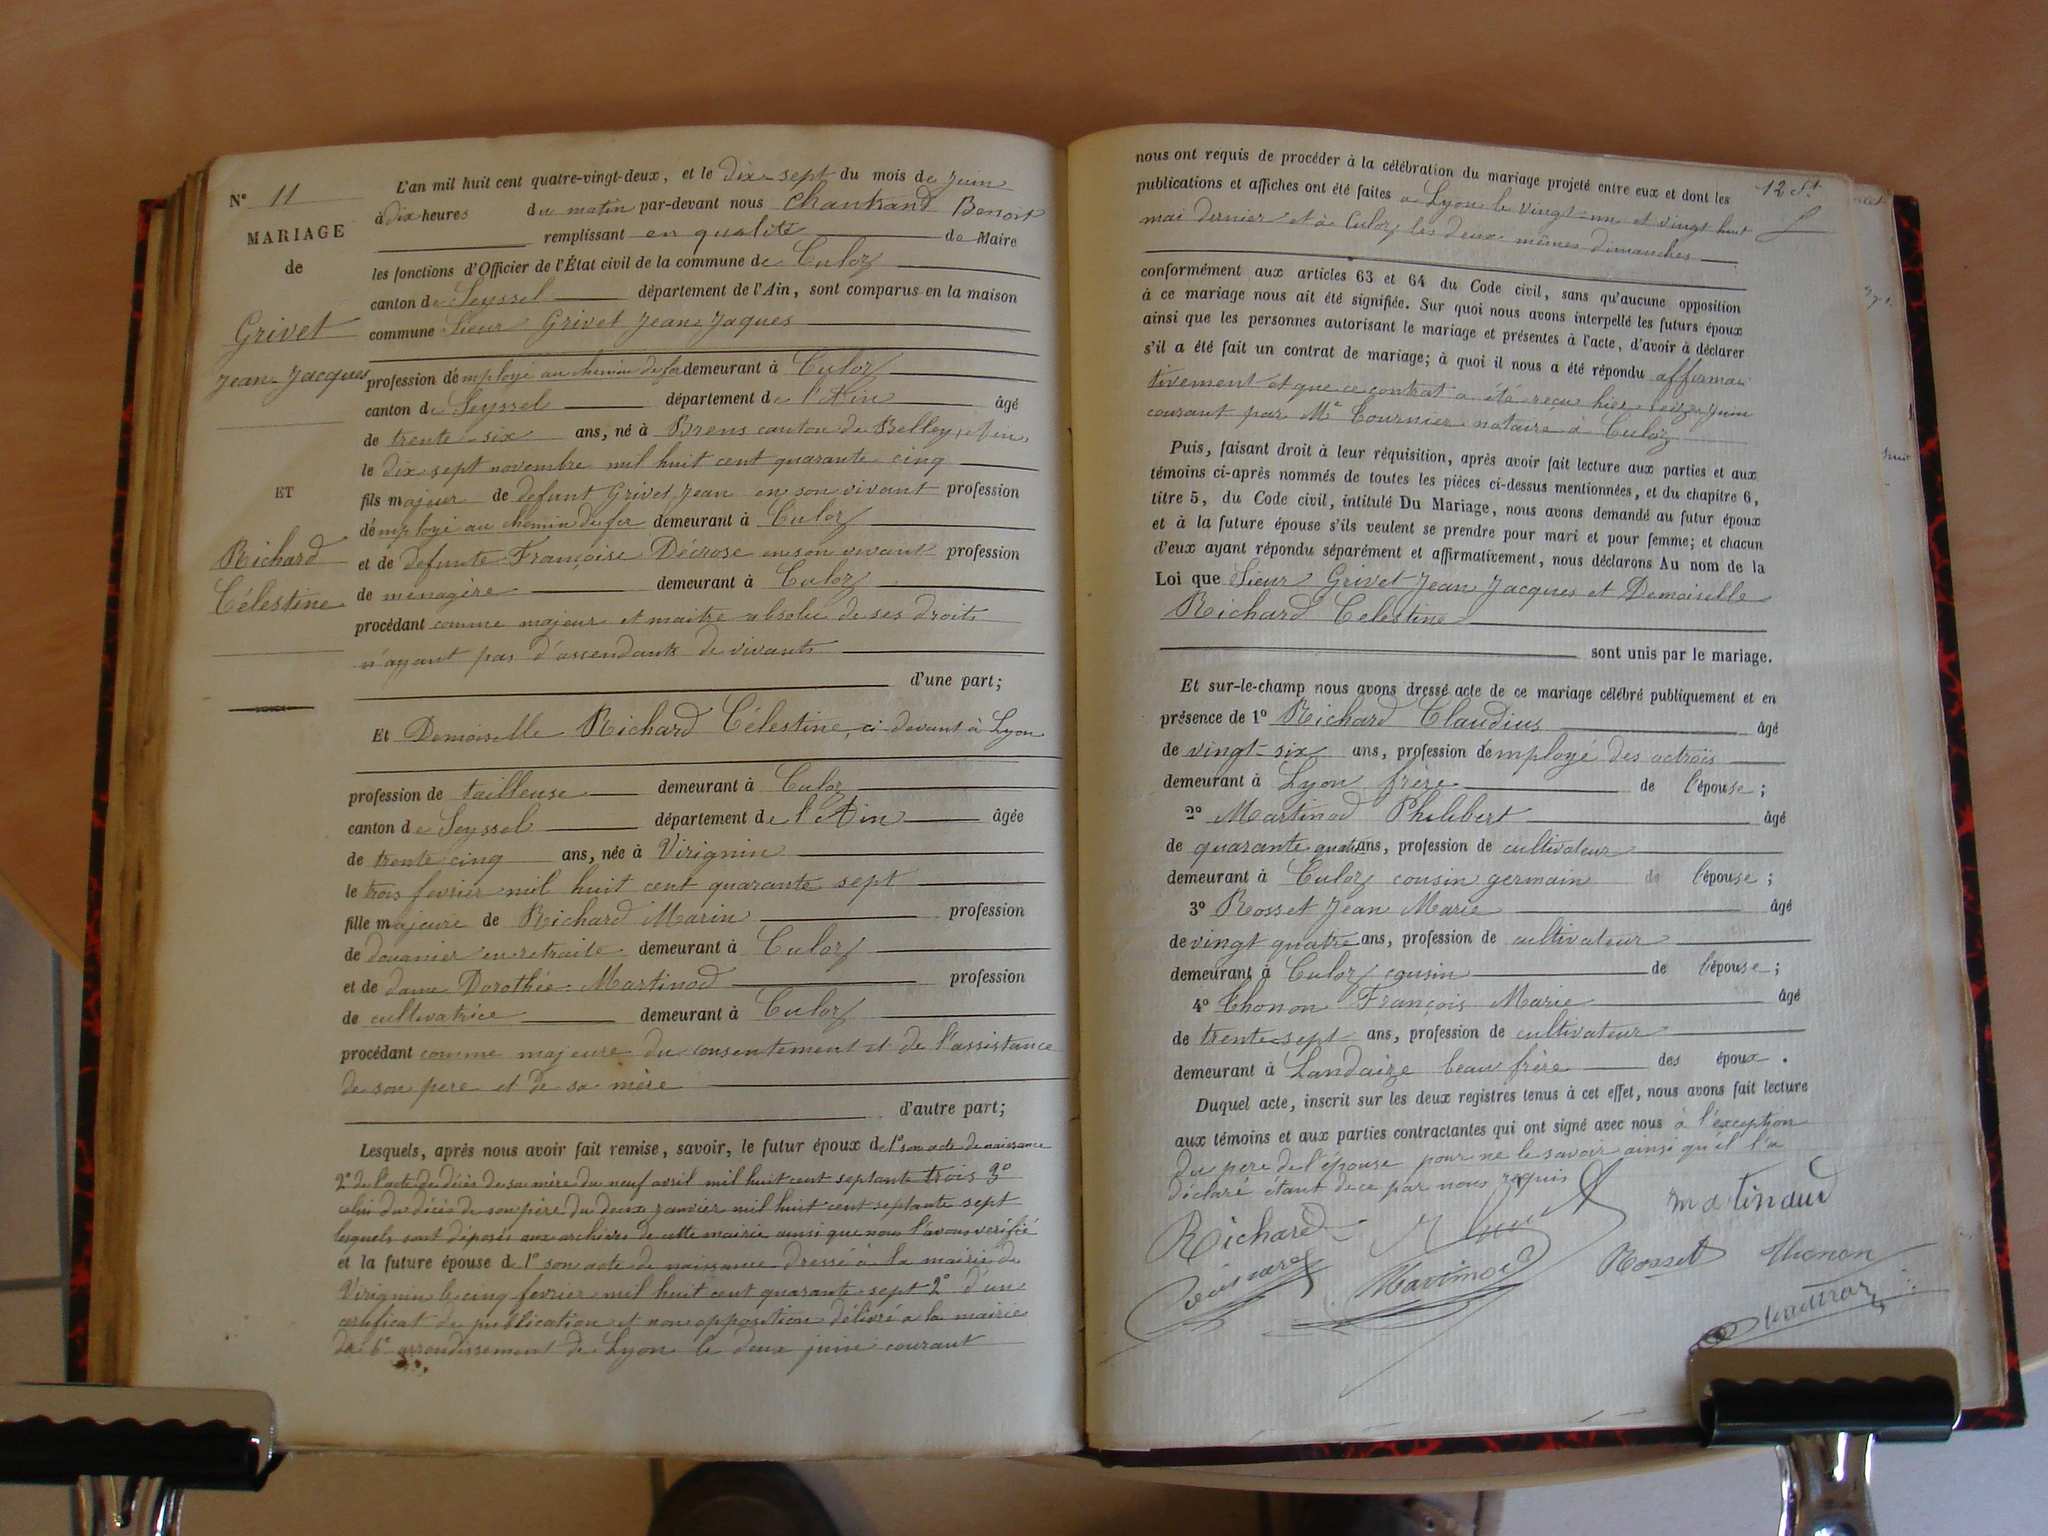 N° 11
MARIAGE
de
Grivet
Jean-Jacques
ET
Richard
Célestine
L'an mil huit cent quatre-vingt-deux, et le dix-sept du mois de juin
à dix heures du matin par-devant nous Chautrand Benoit
remplissant en qualité de Maire
les fonctions d'Officier de l'État civil de la commune de Culoz
canton de Seyssel département de l'Ain, sont comparus en la maison
commune Sieur Grivet Jean-Jaques
profession d'employé au chemin de fer demeurant à Culoz
canton de Seyssel département de l'Ain âgé
de trente-six ans, né à Brens canton de Belley, Ain
le dix sept novembre mil huit cent quarante cinq
fils majeur de defunt Grivet Jean en son vivant profession
d'employé au chemin de fer demeurant à Culoz
et de defunte Françoise Décrose en son vivant profession
de ménagère demeurant à Culoz
procédant comme majeur et maitre absolu de ses droits
n'ayant pas d'ascendants de vivants
d'une part;
Et Demoiselle Richard Célestine, ci devant à Lyon
profession de tailleuse demeurant à Culoz
canton de Seyssel département de l'Ain âgée
de trente cinq ans, née à Virignin
le trois fevrier mil huit cent quarante sept
fille majeure de Richard Marin profession
de douanier en retraite demeurant à Culoz
et de dame Dorothée Martinod profession
de cultivatrice demeurant à Culoz
procédant comme majeure du consentement et de l'assistance
de son pere et de sa mère
d'autre part;
Lesquels, après nous avoir fait remise, savoir, le futur époux de 1° son acte de naissance
2° de l'acte de décès de sa mère du neuf avril mil huit cent septante trois 3°
celui du décès de son père du deux janvier mil huit cent septante sept
lesquels sont déposés aux archives de cette mairie ainsi que nous l'avons verifié
et la future épouse de 1° son acte de naissance dressé à la mairie de
Virignin le cinq fevrier mil huit cent quarante sept 2° d'un
certificat de publication et non opposition délivré a la mairie
du 6e arrondissement de Lyon le deux juin courant
12 St
nous ont requis de procéder à la célébration du mariage projeté entre eux et dont les
publications et affiches ont été faites à Lyon le vingt-un et vingt huit
mai dernier et à Culoz les deux mêmes dimanches
conformément aux articles 63 et 64 du Code civil, sans qu'aucune opposition
à ce mariage nous ait été signifiée. Sur quoi nous avons interpellé les futurs époux
ainsi que les personnes autorisant le mariage et présentes à l'acte, d'avoir à déclarer
s'il a été fait un contrat de mariage; à quoi il nous a été répondu affirma
tivement et que ce contrat a été reçu hier seize juin
courant par Me Cournier notaire à Culoz
Puis, faisant droit à leur réquisition, après avoir fait lecture aux parties et aux
témoins ci-après nommés de toutes les pièces ci-dessus mentionnées, et du chapitre 6,
titre 5, du Code civil, intitulé Du Mariage, nous avons demandé au futur époux
et à la future épouse s'ils veulent se prendre pour mari et pour femme; et chacun
d'eux ayant répondu séparément et affirmativement, nous déclarons Au nom de la
Loi que Sieur Grivet Jean Jacques et Demoiselle
Richard Celestine
sont unis par le mariage.
Et sur-le-champ nous avons dressé acte de ce mariage célébré publiquement et en
présence de 1° Richard Claudius âgé
de vingt-six ans, profession d'employé des octrois
demeurant à Lyon frère de l'épouse;
2° Martinod Philibert âgé
de quarante quatre ans, profession de cultivateur
demeurant à Culoz cousin germain de l'épouse;
3° Rosset Jean Marie âgé
de vingt quatre ans, profession de cultivateur
demeurant à Culoz cousin de l'épouse;
4° Thonon François Marie âgé
de trente-sept ans, profession de cultivateur
demeurant à Landaize beau frère des époux.
Duquel acte, inscrit sur les deux registres tenus à cet effet, nous avons fait lecture
aux témoins et aux parties contractantes qui ont signé avec nous à l'exception
du pere de l'épouse pour ne le savoir ainsi qu'il l'a
déclaré étant de ce par nous requis
Richard
martinaud
Martinod
Rosset
Thonon
Chautrand